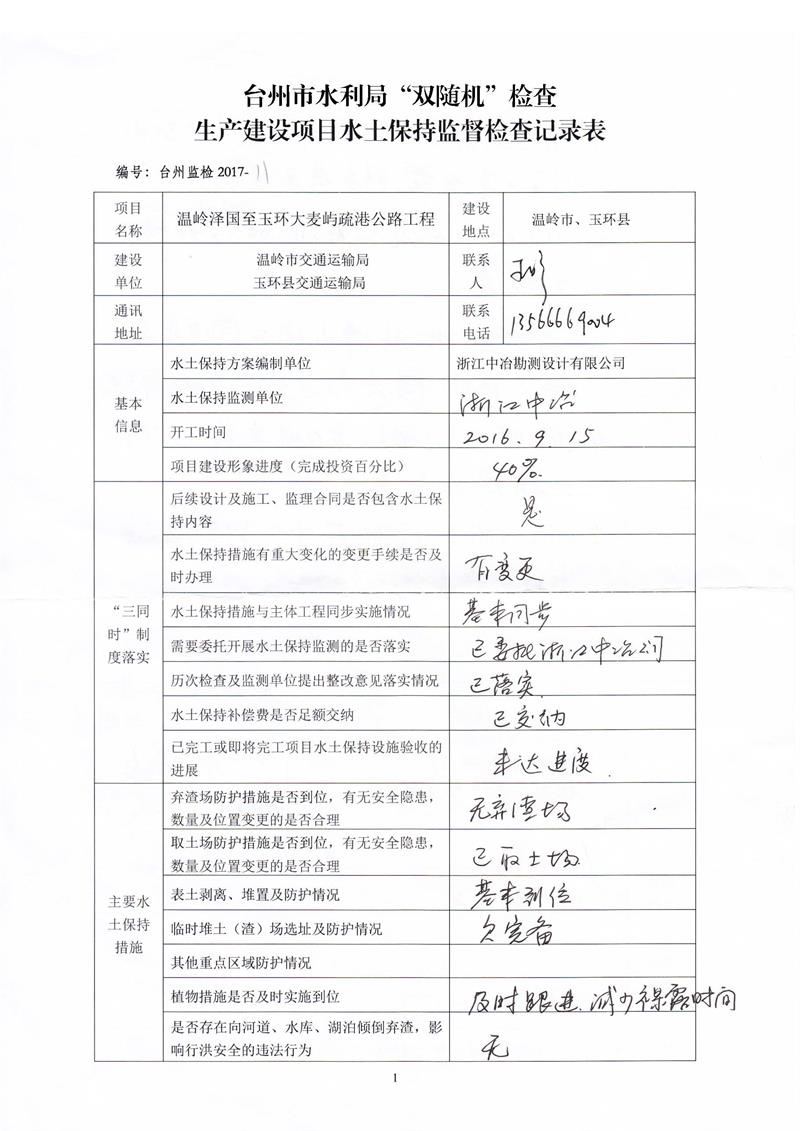 台州市水利局“双随机”检查
生产建设项目水土保持监督检查记录表
编号：台州监检 2017-11
项目名称 温岭泽国至玉环大麦屿疏港公路工程 建设地点 温岭市、玉环县
建设单位 温岭市交通运输局 玉环县交通运输局 联系人
通讯地址 联系电话 13566669004
基本信息
水土保持方案编制单位 浙江中冶勘测设计有限公司
水土保持监测单位 浙江中冶
开工时间 2016.9.15
项目建设形象进度（完成投资百分比） 40%
“三同时”制度落实
后续设计及施工、监理合同是否包含水土保持内容 是
水土保持措施有重大变化的变更手续是否及时办理 有变更
水土保持措施与主体工程同步实施情况 基本同步
需要委托开展水土保持监测的是否落实 已委托浙江中冶公司
历次检查及监测单位提出整改意见落实情况 已落实
水土保持补偿费是否足额交纳 已交纳
已完工或即将完工项目水土保持设施验收的进展 未达进度
主要水土保持措施
弃渣场防护措施是否到位，有无安全隐患，数量及位置变更的是否合理 无弃渣场
取土场防护措施是否到位，有无安全隐患，数量及位置变更的是否合理 已取土场
表土剥离、堆置及防护情况 基本到位
临时堆土（渣）场选址及防护情况 欠完备
其他重点区域防护情况
植物措施是否及时实施到位 及时跟进、减少裸露时间
是否存在向河道、水库、湖泊倾倒弃渣，影响行洪安全的违法行为 无
1